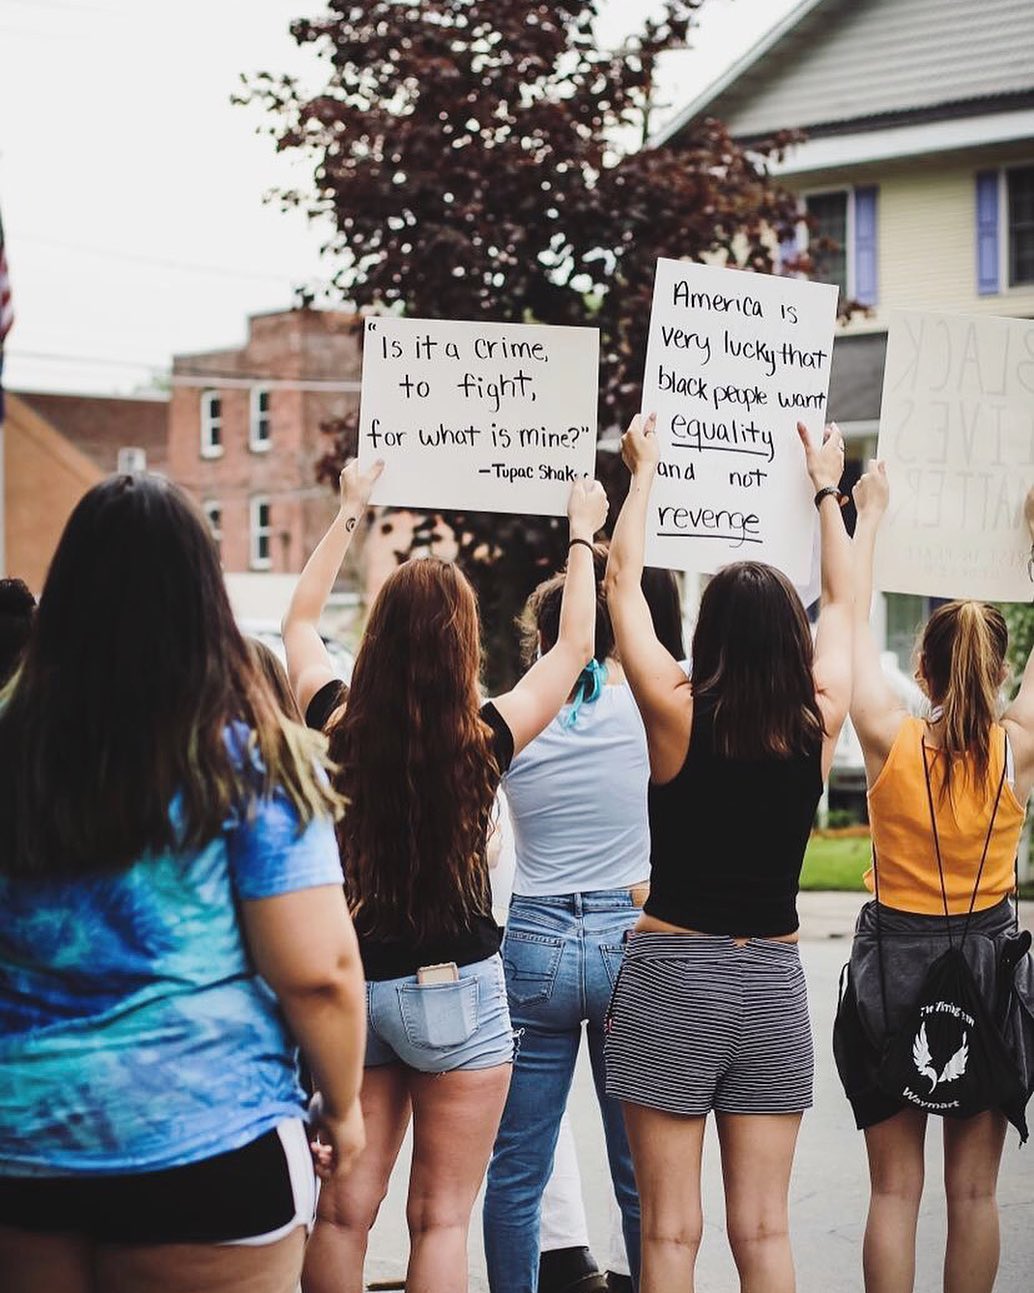 "Is it a crime,
to fight,
for what is mine?"
-Tupac Shak
America is
very lucky that
black people want
equality
and not
revenge
BLACK
LIVES
MATTER
Waymart